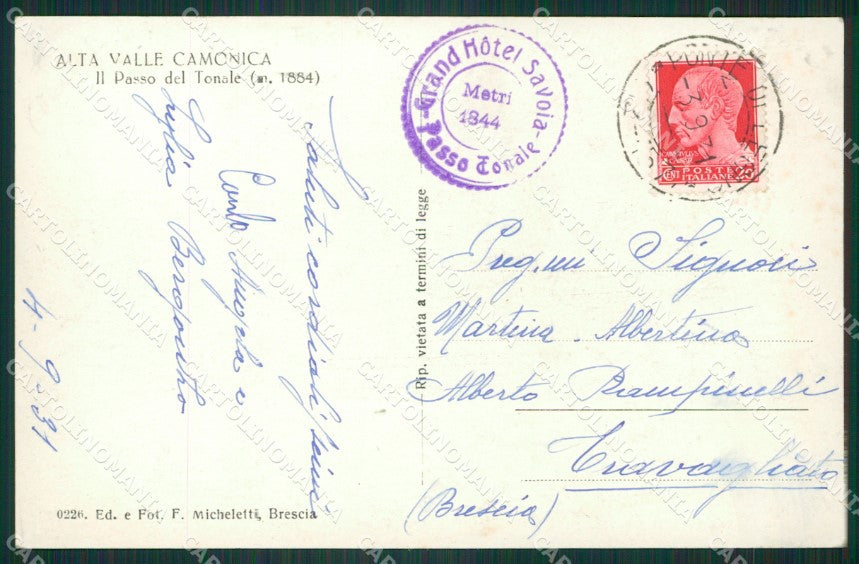 ALTA VALLE CAMONICA
Il Passo del Tonale (m. 1884)
Grand Hôtel Savoia
Metri
1844
Passo Tonale
POSTE
ITALIANE
CENT 20
Saluti cordialissimi
Angela e
Bergomi
4-9-31
Rip. vietata a termini di legge
Preg.mi Signori
Martina - Albertino
Alberto Rampinelli
Travagliato
(Brescia)
0226. Ed. e Fot. F. Micheletti, Brescia
CARTOLINOMANIA